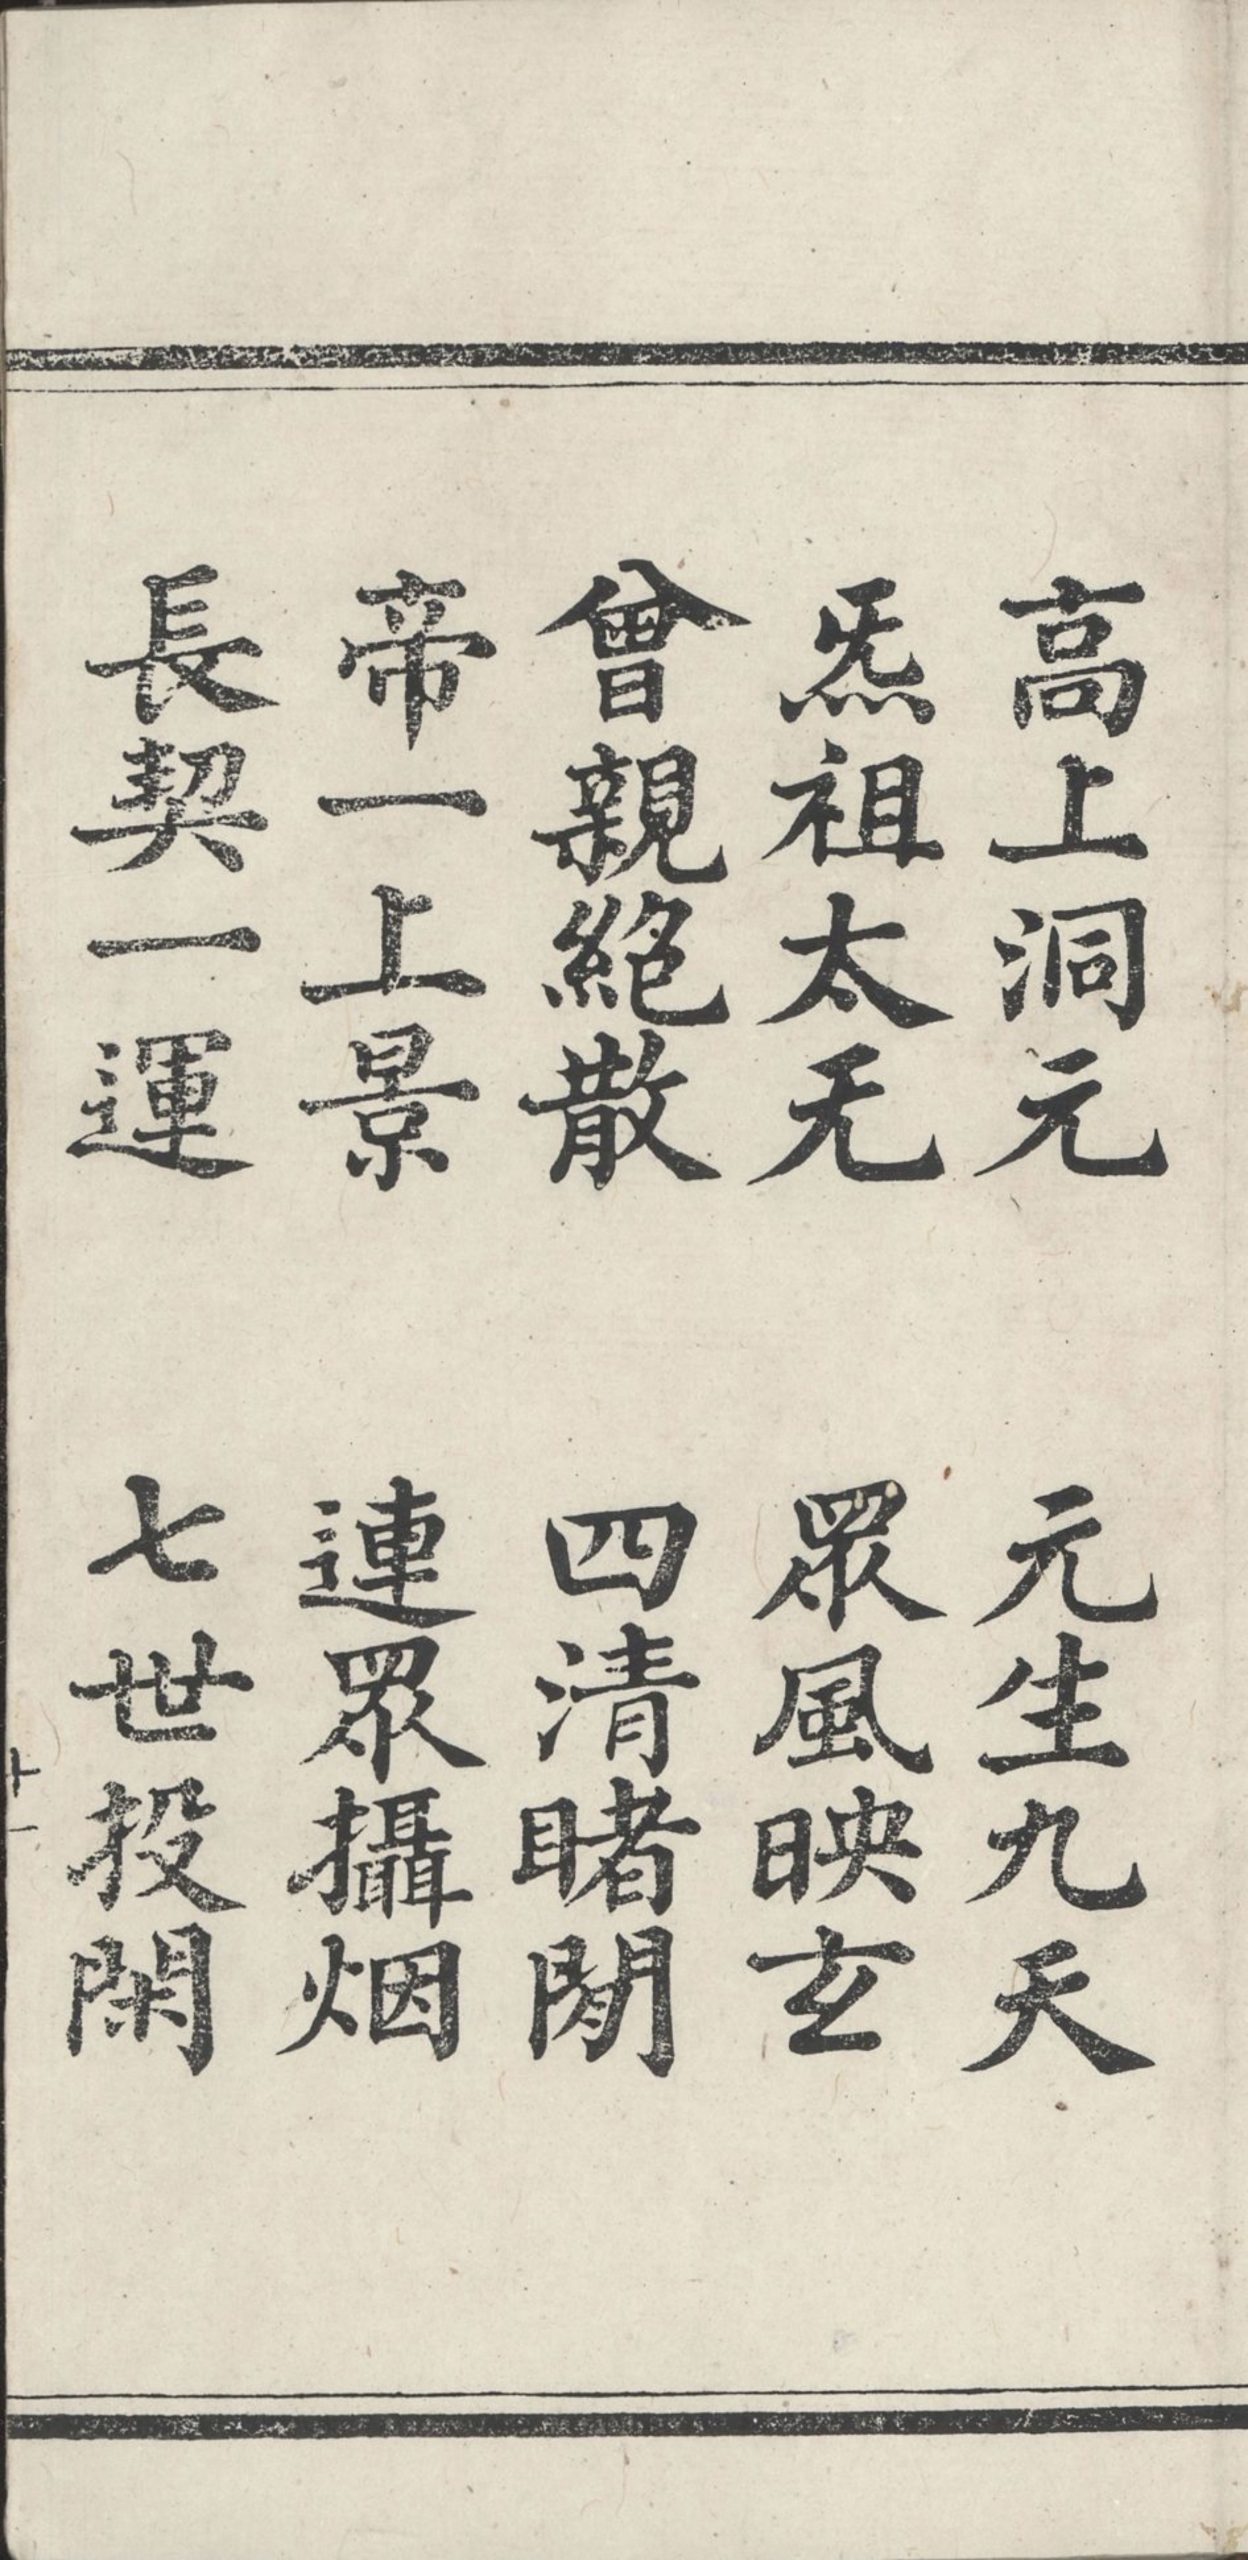 高上洞元　元生九天
炁祖太无　眾風映玄
曾親絕散　四清睹閒
帝一上景　連眾攝烟
長契一運　七世投閑
十一